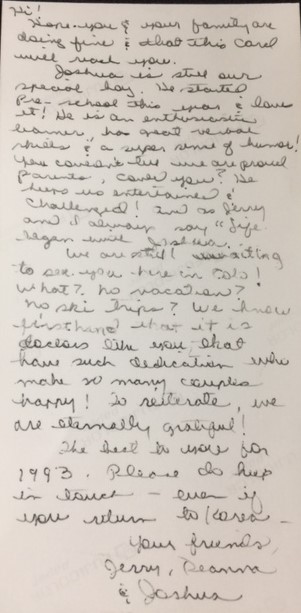 Hi!
Hope you & your family are
doing fine & that this card
will reach you.
Joshua is still our
special boy. He started
Pre-school this year & loves
it! He is an enthusiastic
learner, has great verbal
skills & a super sense of humor!
You couldn't tell we are proud
parents, could you? He
keeps us entertained &
challenged! And so Jerry
and I always say "Life
began with Joshua."
We are still waiting
to see you here in Colo!
What? No vacation?
No ski trips? We know
firsthand that it is
doctors like you that
have such dedication who
make so many couples
happy! To reiterate, we
are eternally grateful!
The best to you for
1993. Please do keep
in touch - even if
you return to Korea -
Your friends,
Jerry, Deanna
& Joshua